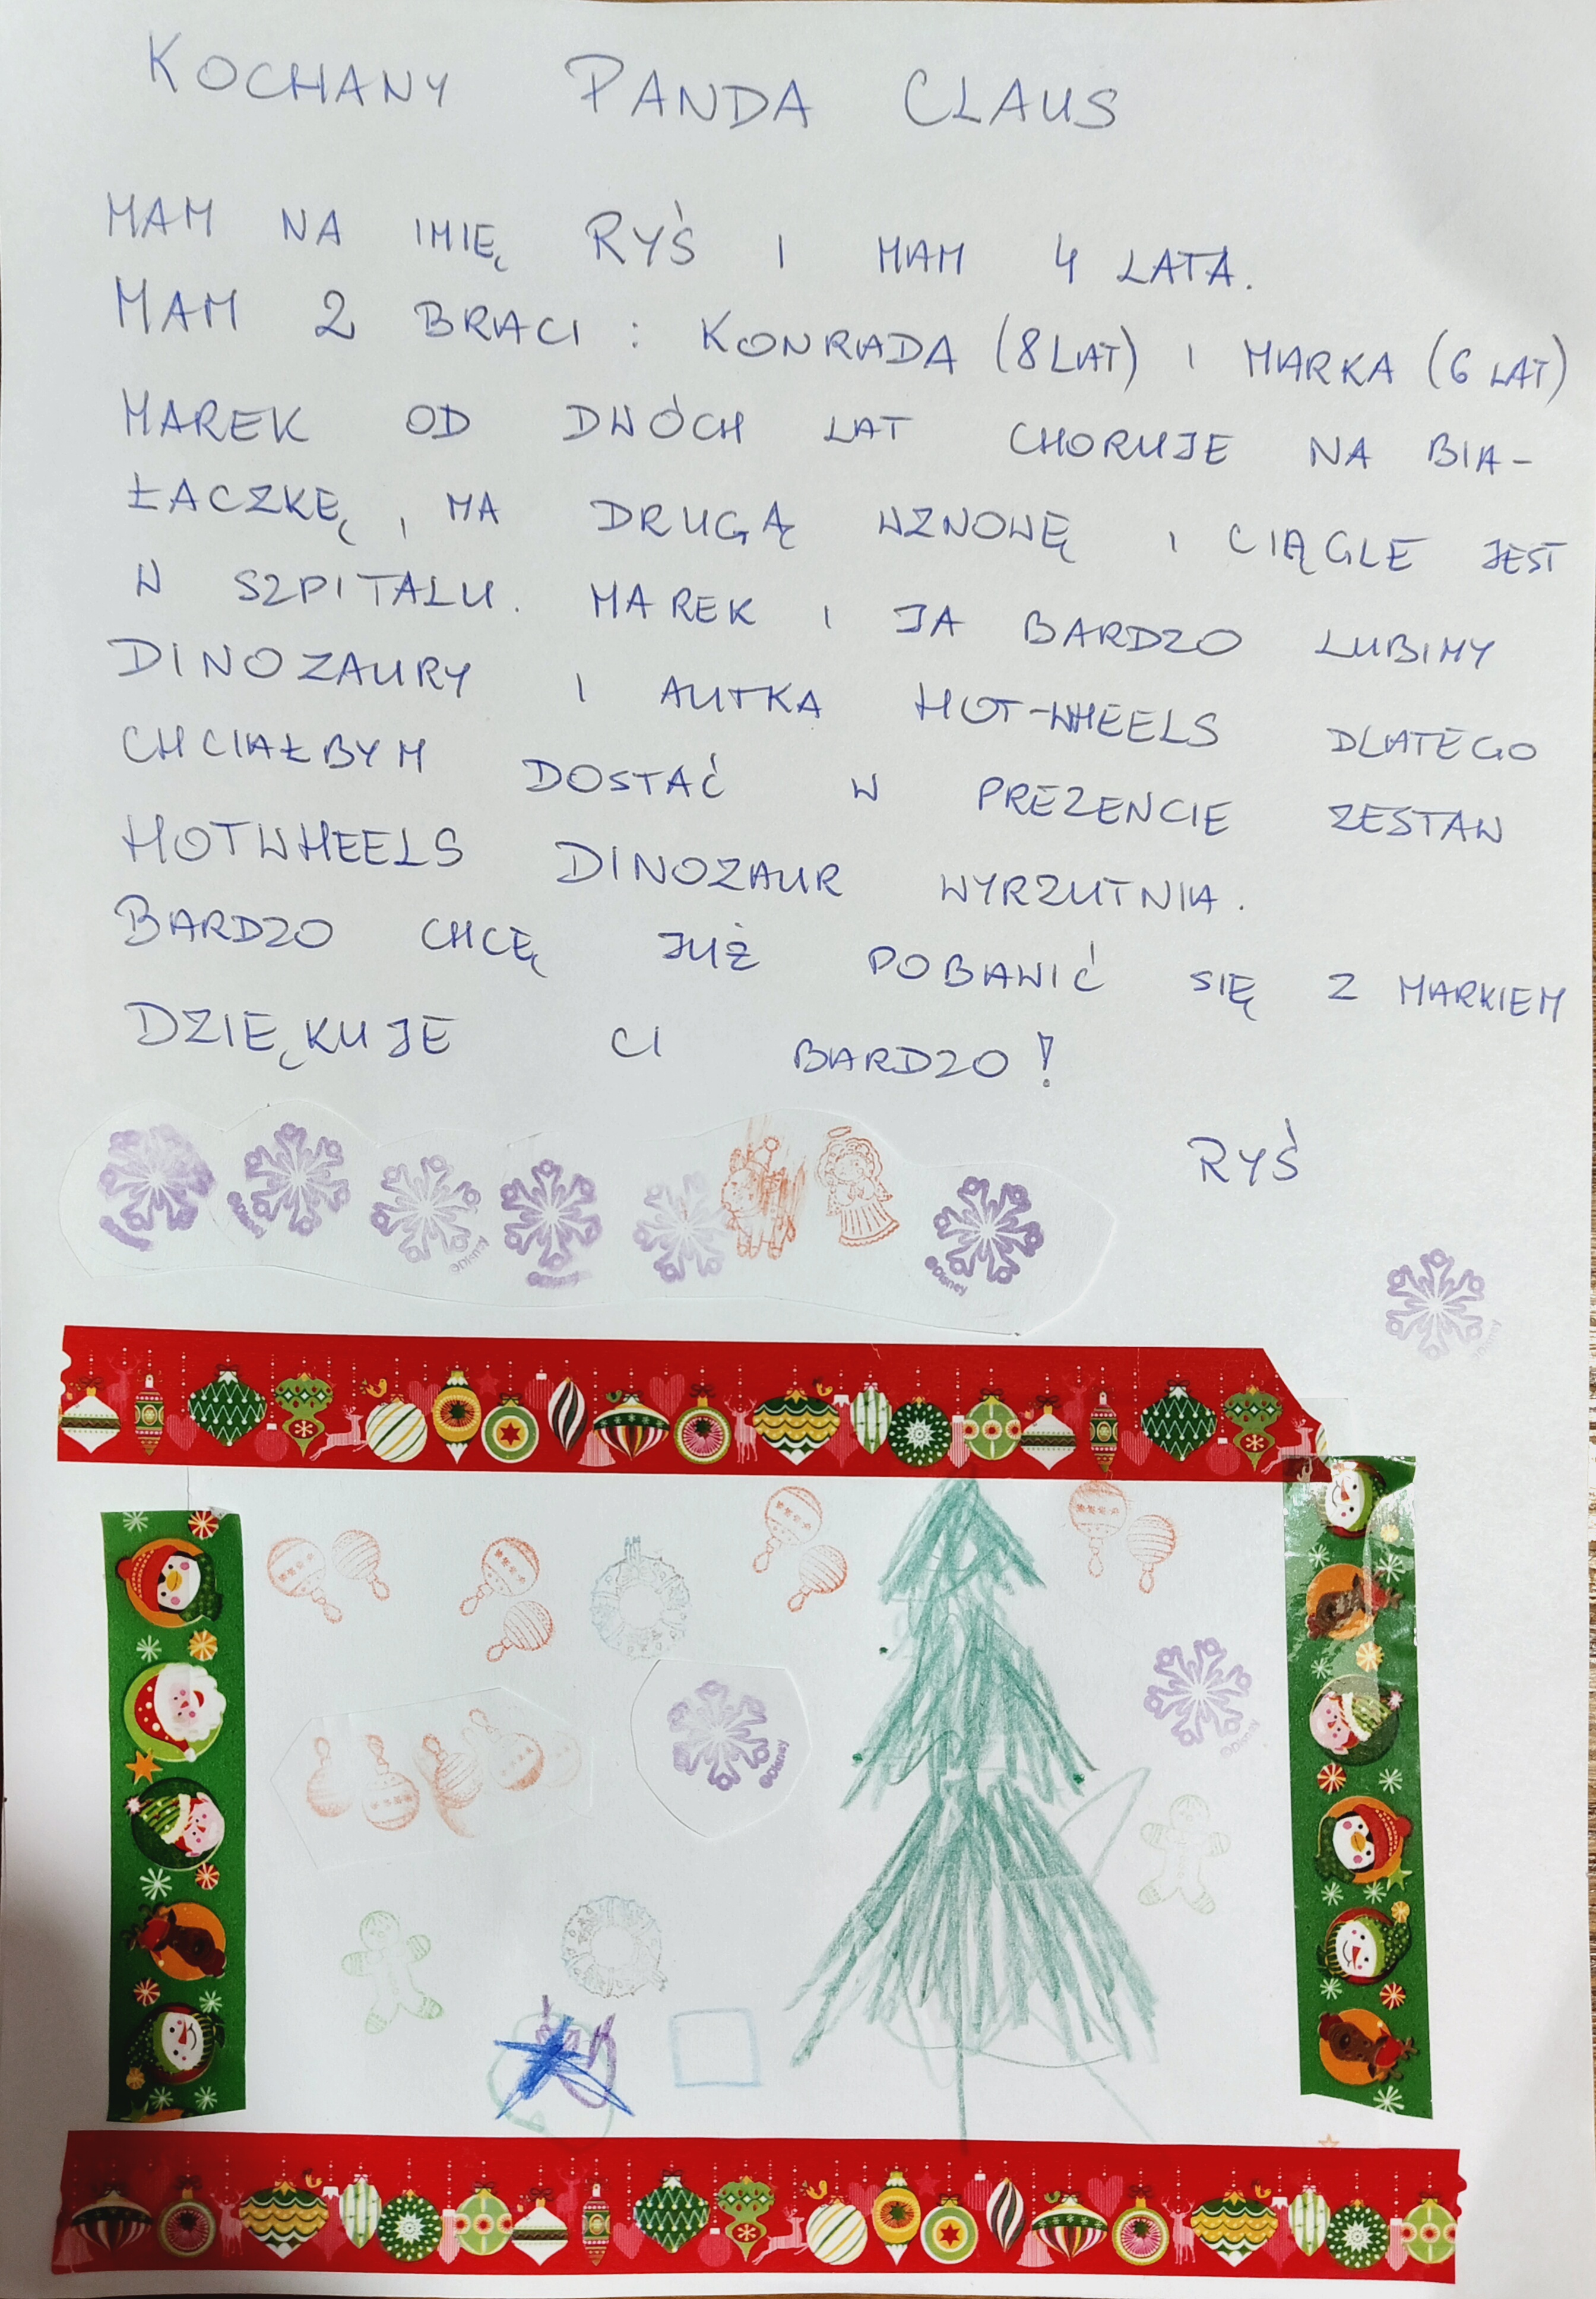 KOCHANY PANDA CLAUS
MAM NA IMIĘ RYŚ I MAM 4 LATA.
MAM 2 BRACI : KONRADA (8 LAT) I MARKA (6 LAT)
MAREK OD DWÓCH LAT CHORUJE NA BIA-
ŁACZKĘ, MA DRUGĄ WZNOWĘ I CIĄGLE JEST
W SZPITALU. MAREK I JA BARDZO LUBIMY
DINOZAURY I AUTKA HOT-WHEELS DLATEGO
CHCIAŁBYM DOSTAĆ W PREZENCIE ZESTAW
HOTWHEELS DINOZAUR WYRZUTNIA.
BARDZO CHCĘ JUŻ POBAWIĆ SIĘ Z MARKIEM
DZIĘKUJE CI BARDZO!
RYŚ
©Disney
©Disney
©Disney
©Disney
©Disney